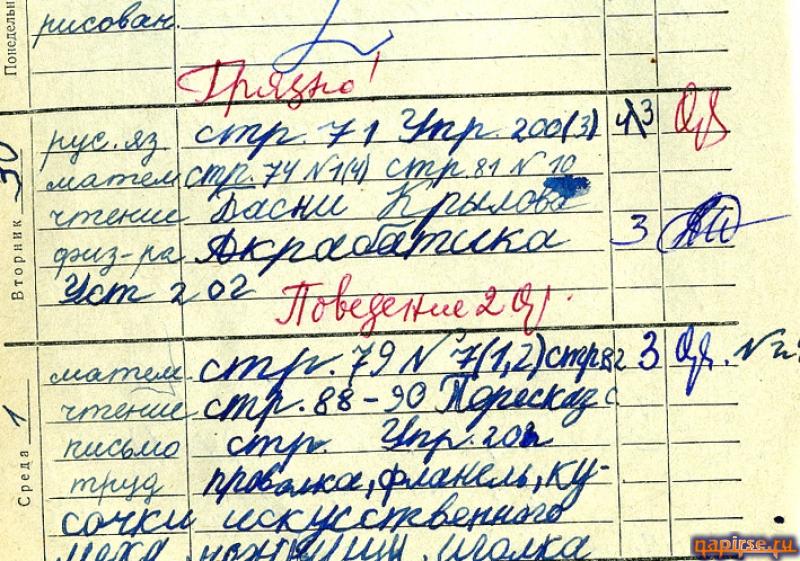 Понедельн
рисован.
Грязно!
Вторник 30
рус. яз стр. 71 Упр. 200(3) 3
матем стр. 74 №1(4) стр. 81 № 10
чтение Басни Крылова
физ-ра Акрабатика 3
Уст 202
Поведение 2
Среда 1
матем. стр. 79 № 7(1,2) стр 82 3
чтение стр. 88-90 Пересказ
письмо стр. Упр. 202
труд проволка, фланель, ку-
сочки искусственного
меха, ножницы, иголка
napirse.ru